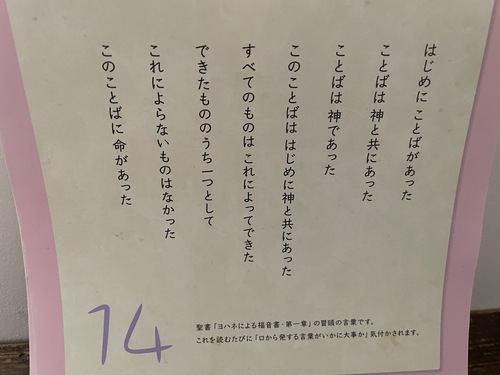 はじめに ことばがあった
ことばは 神と共にあった
ことばは 神であった
このことばは はじめに神と共にあった
すべてのものは これによってできた
できたもののうち 一つとして
これによらないものはなかった
このことばに 命があった
14
聖書「ヨハネによる福音書・第一章」の冒頭の言葉です。
これを読むたびに「口から発する言葉がいかに大事か」気付かされます。